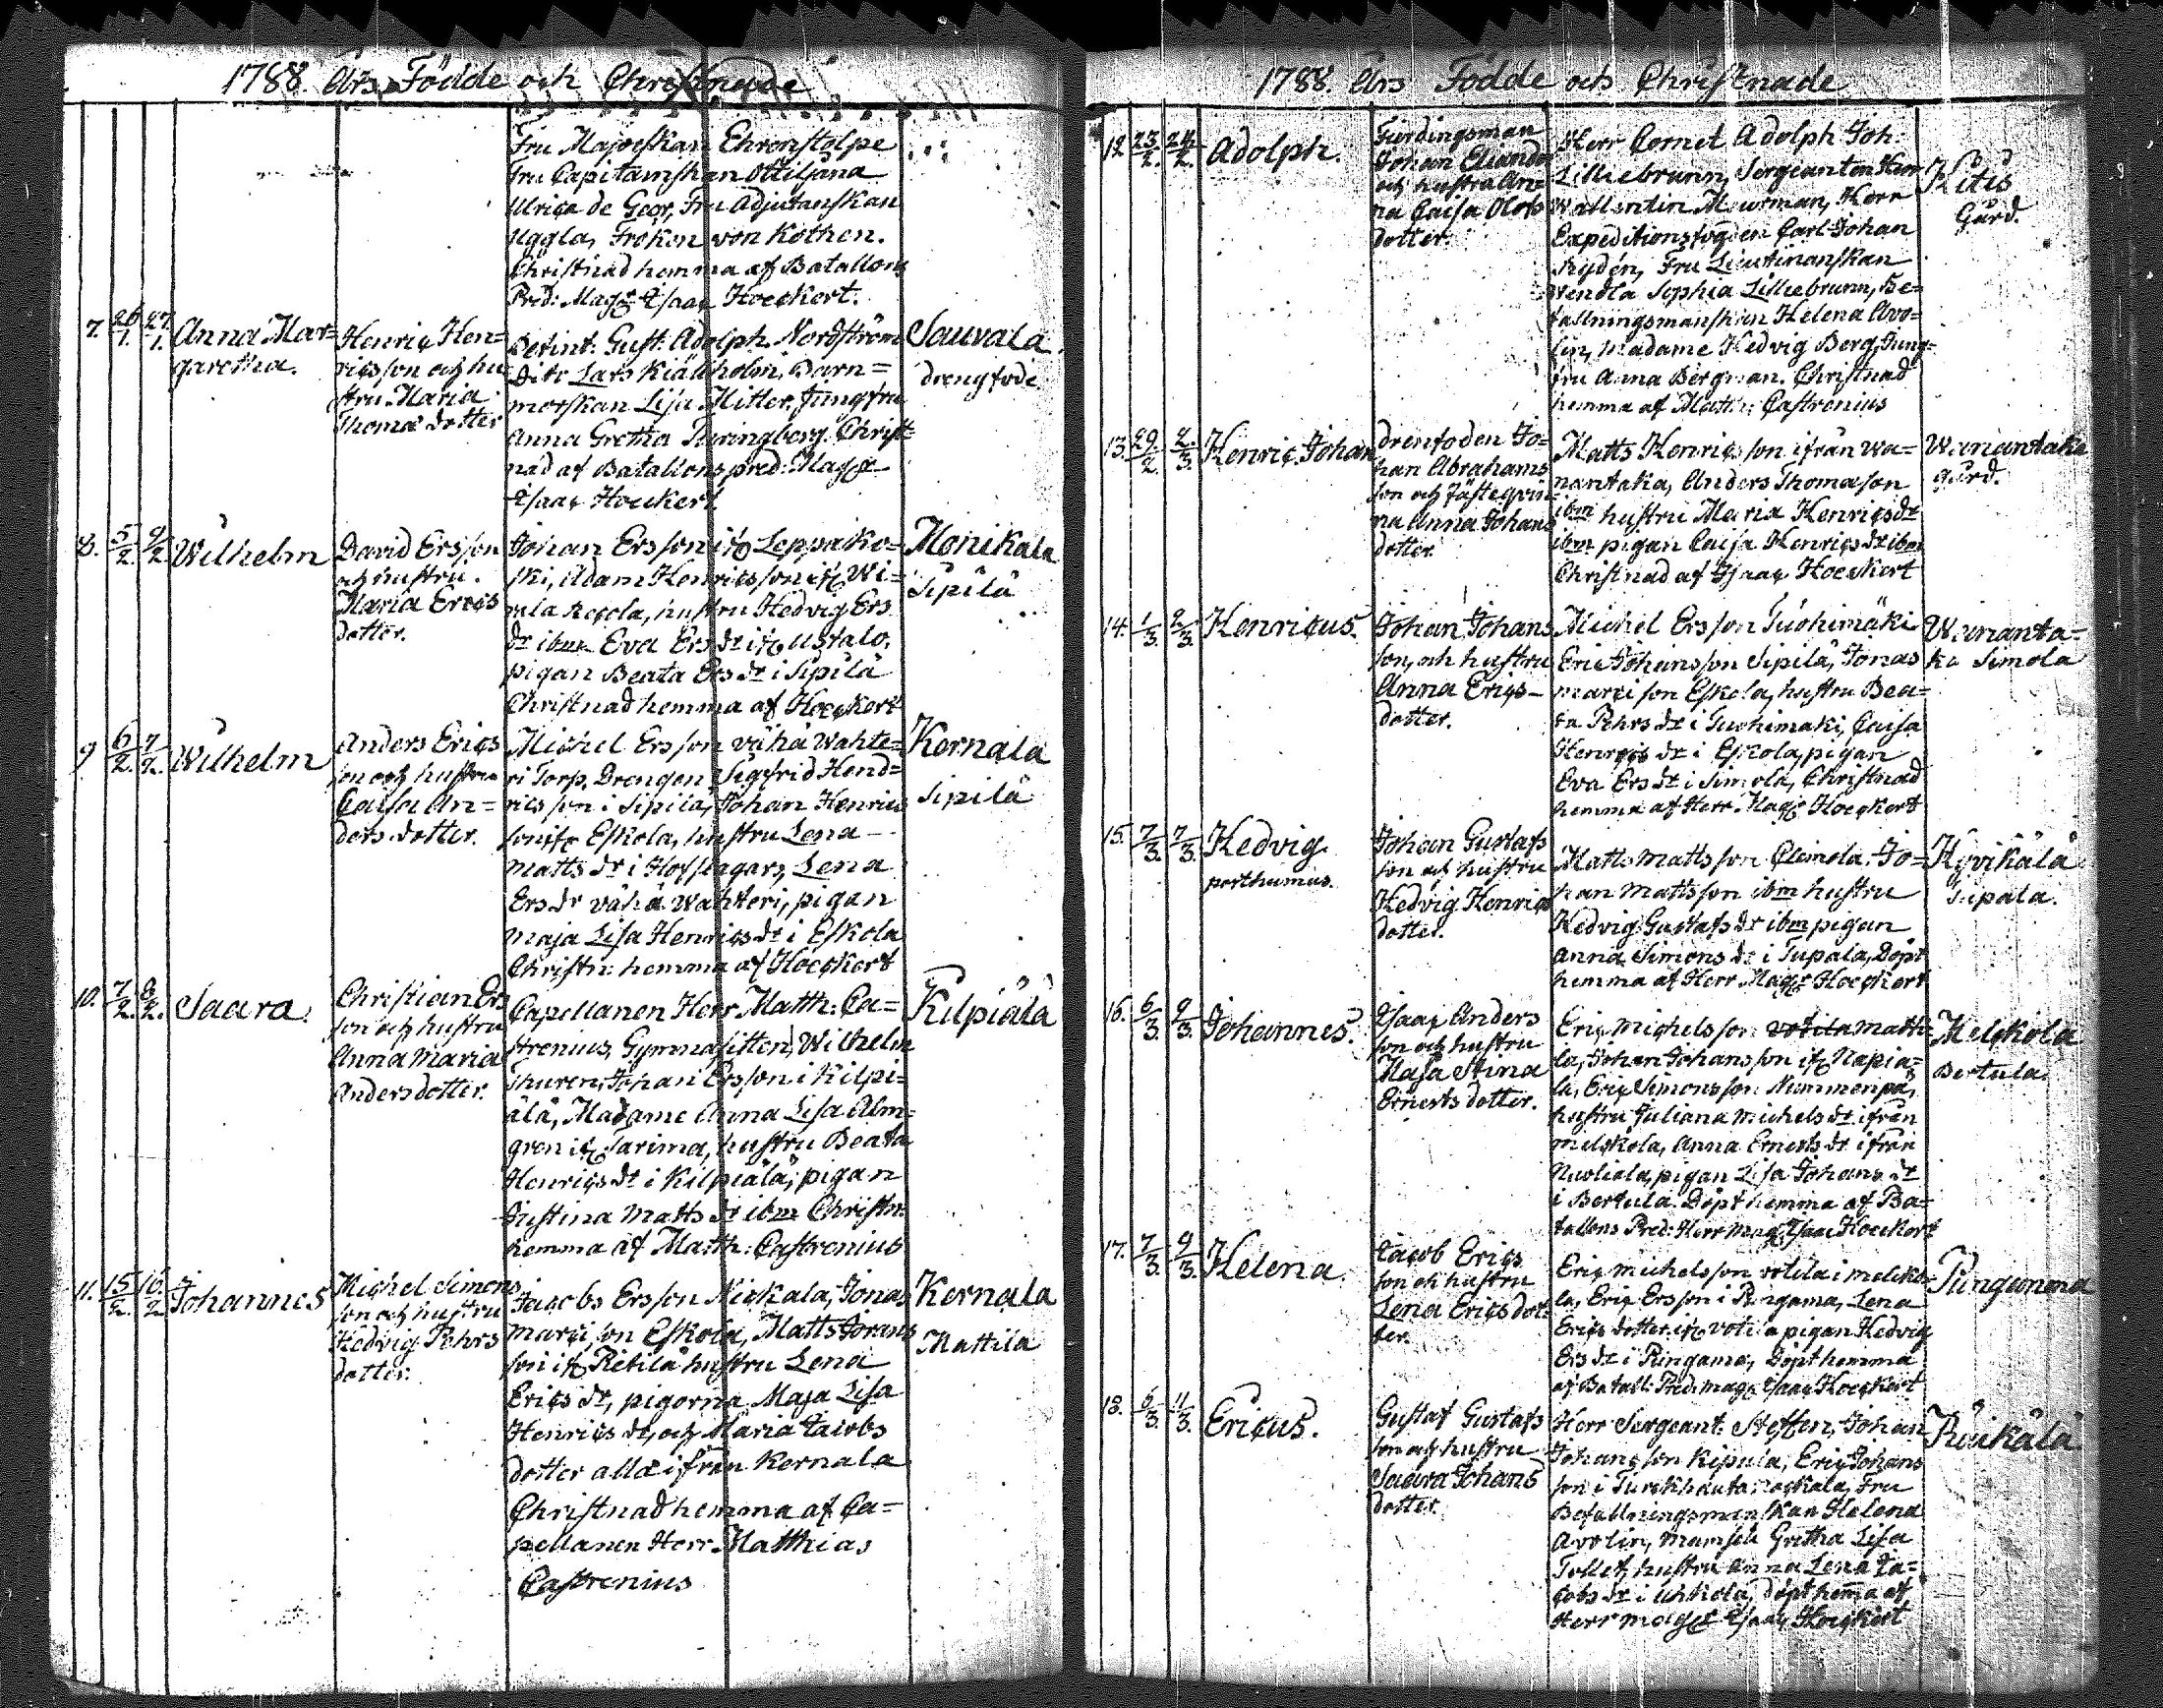 1788. Års Födde och Christnade
Fru Majorskan Ehrenstolpe
Fru Capitainskan Ottiliana
Ulrica de Geer, Fru Adjutanskan
Uggla, Fröken von Köthen.
Christnad hemma af Batallons
Pred: Mag: Isaac Hoeckert.
7. 26/1. 27/1. Anna Mar=
garetha.
Henric Hen=
ricsson och hu
stru Maria
Thomæ dotter
Gust: Adolph Nordström
Lars Kiällholm, Barn=
morskan Lisa Hitler, Jungfru
Anna Gretha Thuringberg. Christ=
nad af Batallons pred: Mag:
Isaac Hoeckert.
Sauvala
drengfode
8. 5/2. 9/2. Wilhelm
David Ersson
och hustru
Maria Erics
dotter.
Johan Ersson ifr. Leppäko=
ski, Adam Henricsson ifr. Wi=
rala hustru Hedvig Ers
dr ibm Eva Ers dr ifr. Ustalo,
pigan Beata Ers dr i Sipilä
Christnad hemma af Hoeckert
Monikala
Sipilä
9. 6/2. 7/2. Wilhelm
Anders Erics
son och hustru
Caisa An=
ders dotter.
Michel Ersson vähä Wahte=
ri Torp, Drengen Sigfrid Hend=
rics son i Sipilä, Johan Henrics
son ifr. Eskola, hustru Lena
Matts dr i Hofslagars, Lena
Ers dr vähä Wahteri, pigan
Maja Lisa Henrics dr i Eskola
Christn: hemma af Hoeckert
Kernala
Sipilä
10. 7/2. 8/2. Saara.
Christian Ers
son och hustru
Anna Maria
Andersdotter.
Capellanen Herr Matth: Ca=
strenius, Gymnasisten Wilhelm
Thuren, Johan Ersson i Kilpi=
älä, Madame Anna Lisa Alm=
gren ifr. Sarima, hustru Beata
Henrics dr i Kilpiälä, pigan
Justina Matts dr ibm Christn:
hemma af Matth: Castrenius
Kilpiälä
11. 15/2. 16/2 Johannes
Michel Simons
son och hustru
Hedvig Pehrs
dotter.
Jacobs Ersson Nickala, Jonas
Marcison Eskola, Matts Jörans
son ifr. Rekilä hustru Lena
Erics dr, pigorna Maja Lisa
Henrics dr, och Maria Jacobs
dotter alla ifrån Kernala
Christnad hemma af Ca=
pellanen Herr Matthias
Castrenius
Kernala
Mattila
1788. Års Födde och Christnade
12. 23/2. 24/2. Adolph.
Fierdingsman
Johan Elianders
och hustru An=
na Caisa Olofs
dotter.
Herr Cornet Adolph Joh:
Lilliebrunn, Sergeanten Herr
Wallentin Meurman, Herr
Expeditionsfogden Carl Johan
Rydén, Fru Lieutinanskan
Wendla Sophia Lilliebrunn, Be=
fallningsmanskan Helena Avo=
lin, Madame Hedvig Berg, Jung=
fru Anna Bergman. Christnad
hemma af Matth: Castrenius
Gård.
13. 29/2. 2/3. Henric Johan
Johan Abrahams
son och
na Anna Johans
dotter.
Matts Henrics son ifrån Wa=
nantaka, Anders Thomason
ibm hustru Maria Henrics dr
ibm pigan Caisa Henrics dr ibm
Christnad af Isaac Hoeckert
Wanantaka
gård.
14. 1/3. 2/3. Henricus.
Johan Johans
son, och hustru
Anna Erics=
dotter.
Michel Ersson Tuohimäki
Eric Johansson Sipilä, Jonas
Marcison Eskola, hustru Bea=
ta Pehrs dr i Tuohimäki, Caisa
Henrics dr i Eskola, pigan
Eva Ers dr i Simola, Christnad
hemma af Herr Mag: Hoeckert
Wananta=
ka Simola
15. 7/3. 7/3. Hedvig
posthumus.
Johan Gustafs
son och hustru
Hedvig Henrics
dotter.
Matts Mattsson Clemola, Jo=
han Mattsson ibm hustru
Hedvig Gustafs dr ibm pigan
Anna Simons dr i Tupala, Döpt
hemma af Herr Mag: Hoeckert
Hyvikälä
Tupala.
16. 6/3. 9/3. Johannes.
Isaac Anders
son och hustru
Maja Stina
Ernests dotter.
Eric Michelsson Matti=
la, Johan Johansson ifr. Napia=
la, Eric Simonsson Nummenpä,
hustru Juliana Michels dr ifrån
Melskola, Anna Ernests dr ifrån
Nuoliala, pigan Lisa Johans dr
i Bertula. Döpt hemma af Ba=
tallons Pred: Herr Mag: Isaac Hoeckert
Melskola
Bertula.
17. 7/3. 9/3. Helena.
Jacob Erics
son och hustru
Lena Erics dot=
ter.
Eric Michelsson Votila i Melsko=
la, Eric Ersson i Pingama, Lena
Erics dotter ifr. Votila pigan Hedvig
Ers dr i Pingama, Döpt hemma
af Batall: Pred: Mag: Isaac Hoeckert
18. 6/3. 11/3. Ericus.
Gustaf Gustafs
son och hustru
Saara Johans
dotter.
Herr Sergeant Steffen, Johan
Johansson Kipula, Eric Johans
son i Turckhauta, Fru
Befallningsmanskan Helena
Avolin, Mamsell Gretha Lisa
Tollet, hustru Anna Lena Ja=
cobs dr i Uhkola, döpt hemma af
Herr Mag: Isaac Hoeckert